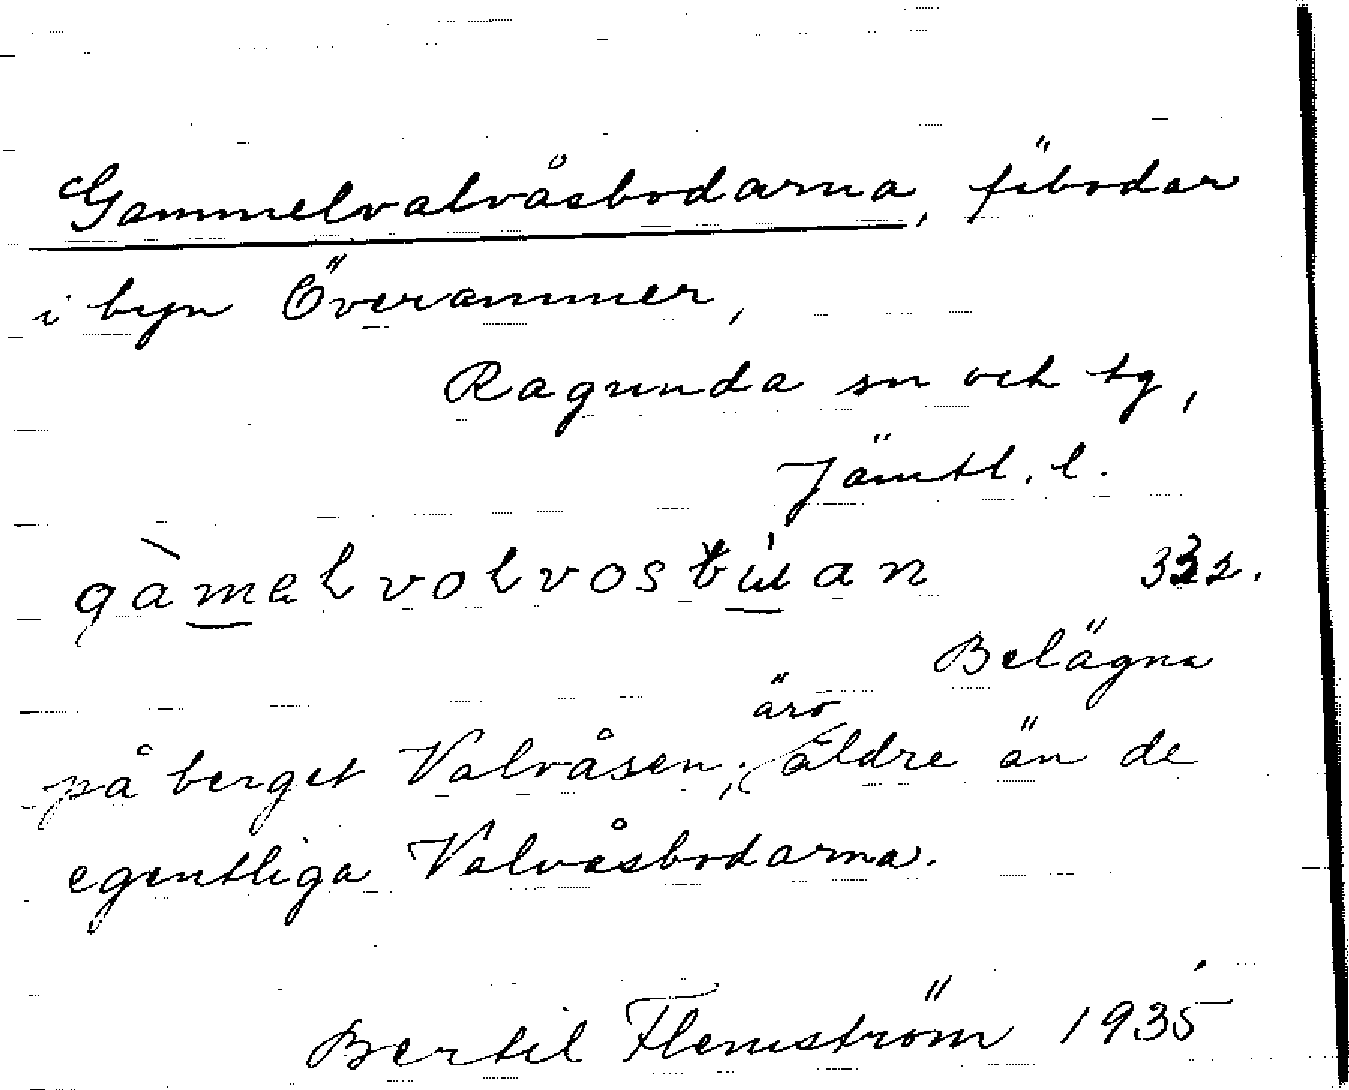 Gammelvalvåsbodarna, fäbodar
i byn Överammer,
Ragunda sn och tg,
Jämtl. l.
332.
Belägna
på berget Valvåsen; äro äldre än de
egentliga Valvåsbodarna.
Bertil Flemström 1935